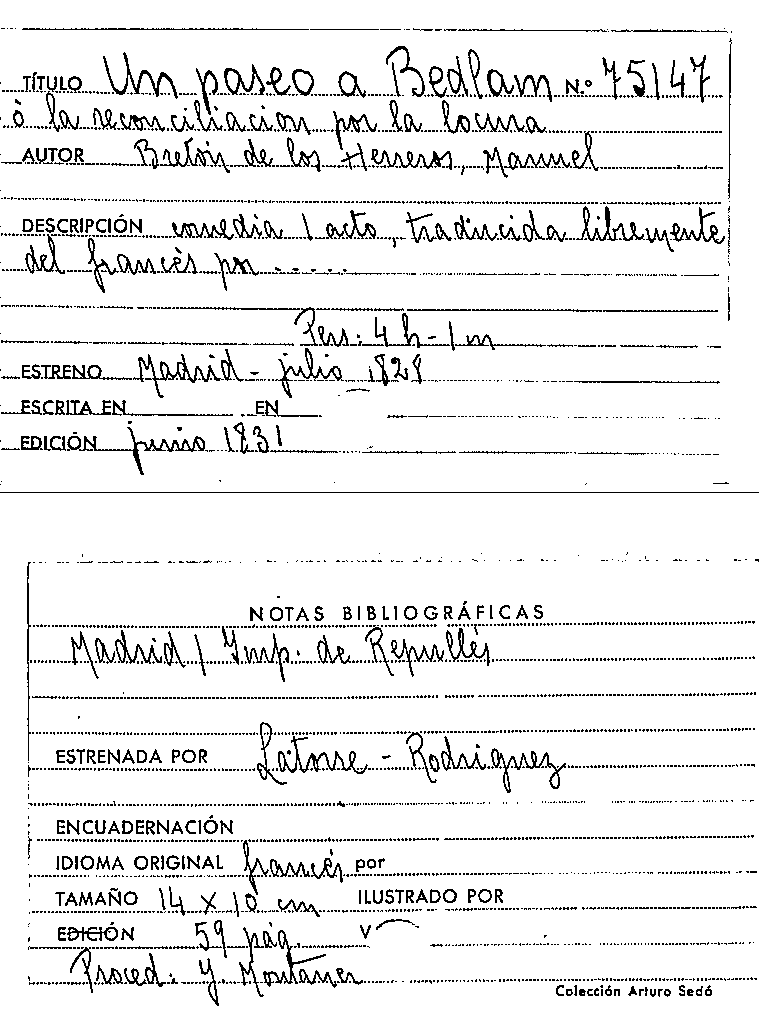 TÍTULO Un paseo a Bedlam N.º 75147
ò la reconciliacion por la locura
AUTOR Bretón de los Herreros, Manuel
DESCRIPCIÓN comedia 1 acto, traducida libremente
del francès por .....
Pers: 4 h - 1 m
ESTRENO Madrid - julio 1828
ESCRITA EN EN
EDICIÓN junio 1831
NOTAS BIBLIOGRÁFICAS
Madrid / Imp. de Repullés
ESTRENADA POR Latorre - Rodriguez
ENCUADERNACIÓN
IDIOMA ORIGINAL francés por
TAMAÑO 14 x 10 cm ILUSTRADO POR
EDICIÓN 59 pág. V
Proced: Y. Montaner
Colección Arturo Sedó